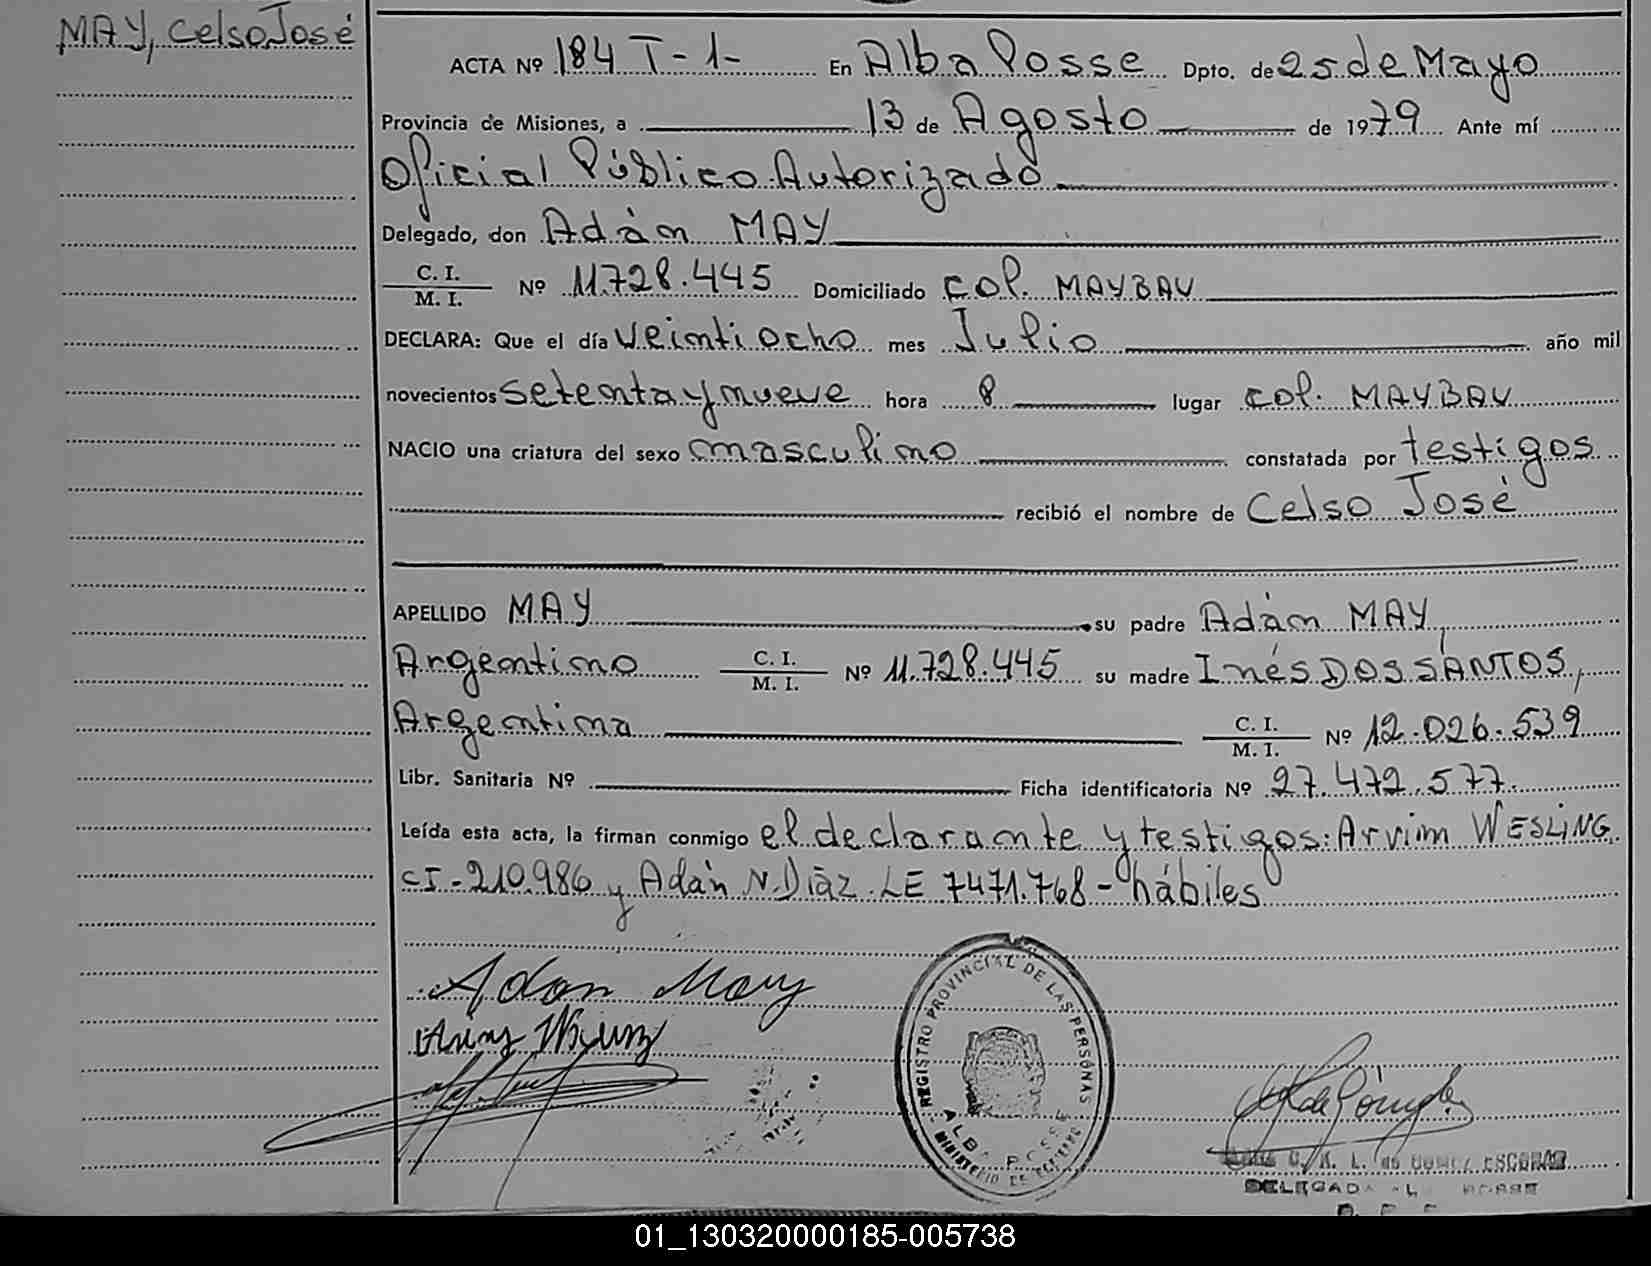 MAY, Celso José
ACTA Nº 184 T-1- En Alba Posse Dpto. de 25 de Mayo
Provincia de Misiones, a 13 de Agosto de 1979 Ante mí
Oficial Público Autorizado
Delegado, don Adán MAY
C. I.
M. I. Nº 11.728.445 Domiciliado Col. MAYBAU
DECLARA: Que el día veintiocho mes Julio año mil
novecientos setenta y nueve hora 8 lugar Col. MAYBAU
NACIO una criatura del sexo masculino constatada por testigos
recibió el nombre de Celso José
APELLIDO MAY su padre Adán MAY,
Argentino C. I. M. I. Nº 11.728.445 su madre Inés DOS SANTOS,
Argentina C. I. M. I. Nº 12.026.539
Libr. Sanitaria Nº Ficha identificatoria Nº 27.472.577.
Leída esta acta, la firman conmigo el declarante y testigos: Arvim WESLING
CI-210.986 y Adán N. Díaz LE 7471.768- hábiles
Adan May
REGISTRO PROVINCIAL DE LAS PERSONAS
ALBA POSSE
MINISTERIO DE GOBIERNO
DE GOMEZ ESCOBAR
DELEGADA POSSE
01_130320000185-005738